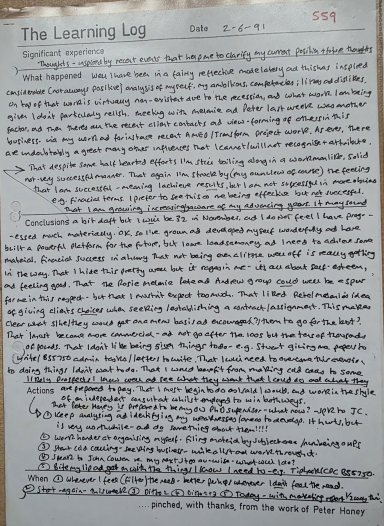 559
The Learning Log Date 2-6-91
Significant experience
Thoughts - inspired by recent events that help me to clarify my current position & future thoughts
What happened Well I have been in a fairly reflective mode lately and this has inspired
considerable (not always positive) analysis of myself, my ambitions, competencies, likes and dislikes.
On top of that work is virtually non-existent due to the recession, and what work I am being
given I don't particularly relish, meeting with Melanie and Peter last week was another
factor, and then there are the recent client contacts and view-forming of others in this
business. via my work and for instance recent Amed/Transform project work. As ever, there
are undoubtedly a great many other influences that I cannot/will not recognise & attribute.
That despite some half hearted efforts I'm still toiling along in a workmanlike, solid
not-very successful manner. That again I'm struck by (my own view of course) the feeling
that I am successful - meaning I achieve results, but I am not successful in more obvious
e.g. financial terms. I prefer to see this as me being effective but not successful.
That I am growing increasingly aware of my advancing years. It may sound
Conclusions a bit daft but I will be 32 in November, and I do not feel I have prog-
-ressed much materially. OK, so I've grown and developed myself wonderfully and have
built a powerful platform for the future, but I one and need to achieve some
material, financial success in a hurry. That not being even a little well off is really getting
in the way. That I hide this pretty well but it in me - it's all about self-esteem,
and feeling good. That the Rosie Melanie Pete and Andrew group could well be a spur
for me in this regard - but that I mustn't expect too much. That I liked Pete/Melanie's idea
of giving clients choices when seeking/establishing a contract/assignment. This makes
clear what s/he/they would get and encourages them to go for the best?.
That I must become more commercial - and not go after the 100s but the tens of thousands
of pounds. That I don't like being sick things to do - e.g. Stuart giving me paper to
write/BS5750 admin tasks/letters to write. That I will need to overcome this aversion
to doing things I don't want to do. That I would benefit from making cold calls to some
likely prospects! I know well and see what they want that I could do and what they
are prepared to pay. That I must begin to do and work in the style
Actions of an independent consultant whilst employed to win both ways.
That Peter Honey is prepared to be my supervisor - what now? - speak to JC.
① Keep analysing and identifying my weaknesses/areas to develop. It hurts, but
is very worthwhile - and do something about them!!!!
② Work harder at organising myself - filing material by subject area/minimising
③ Start cold calling - seeking business - while all
④ Speak to John Cowen re my next step - what will I do?
⑤ Bite my lip and get on with the things I know I need to - e.g. CPC BS5750.
When ① Whenever I feel (filter) the need - better perhaps whenever I don't feel the need.
② Start - again - this week ③ Ditto 2 ④ Ditto 2 ⑤ Today - with marketing report 1/2 way thru.
..... pinched, with thanks, from the work of Peter Honey